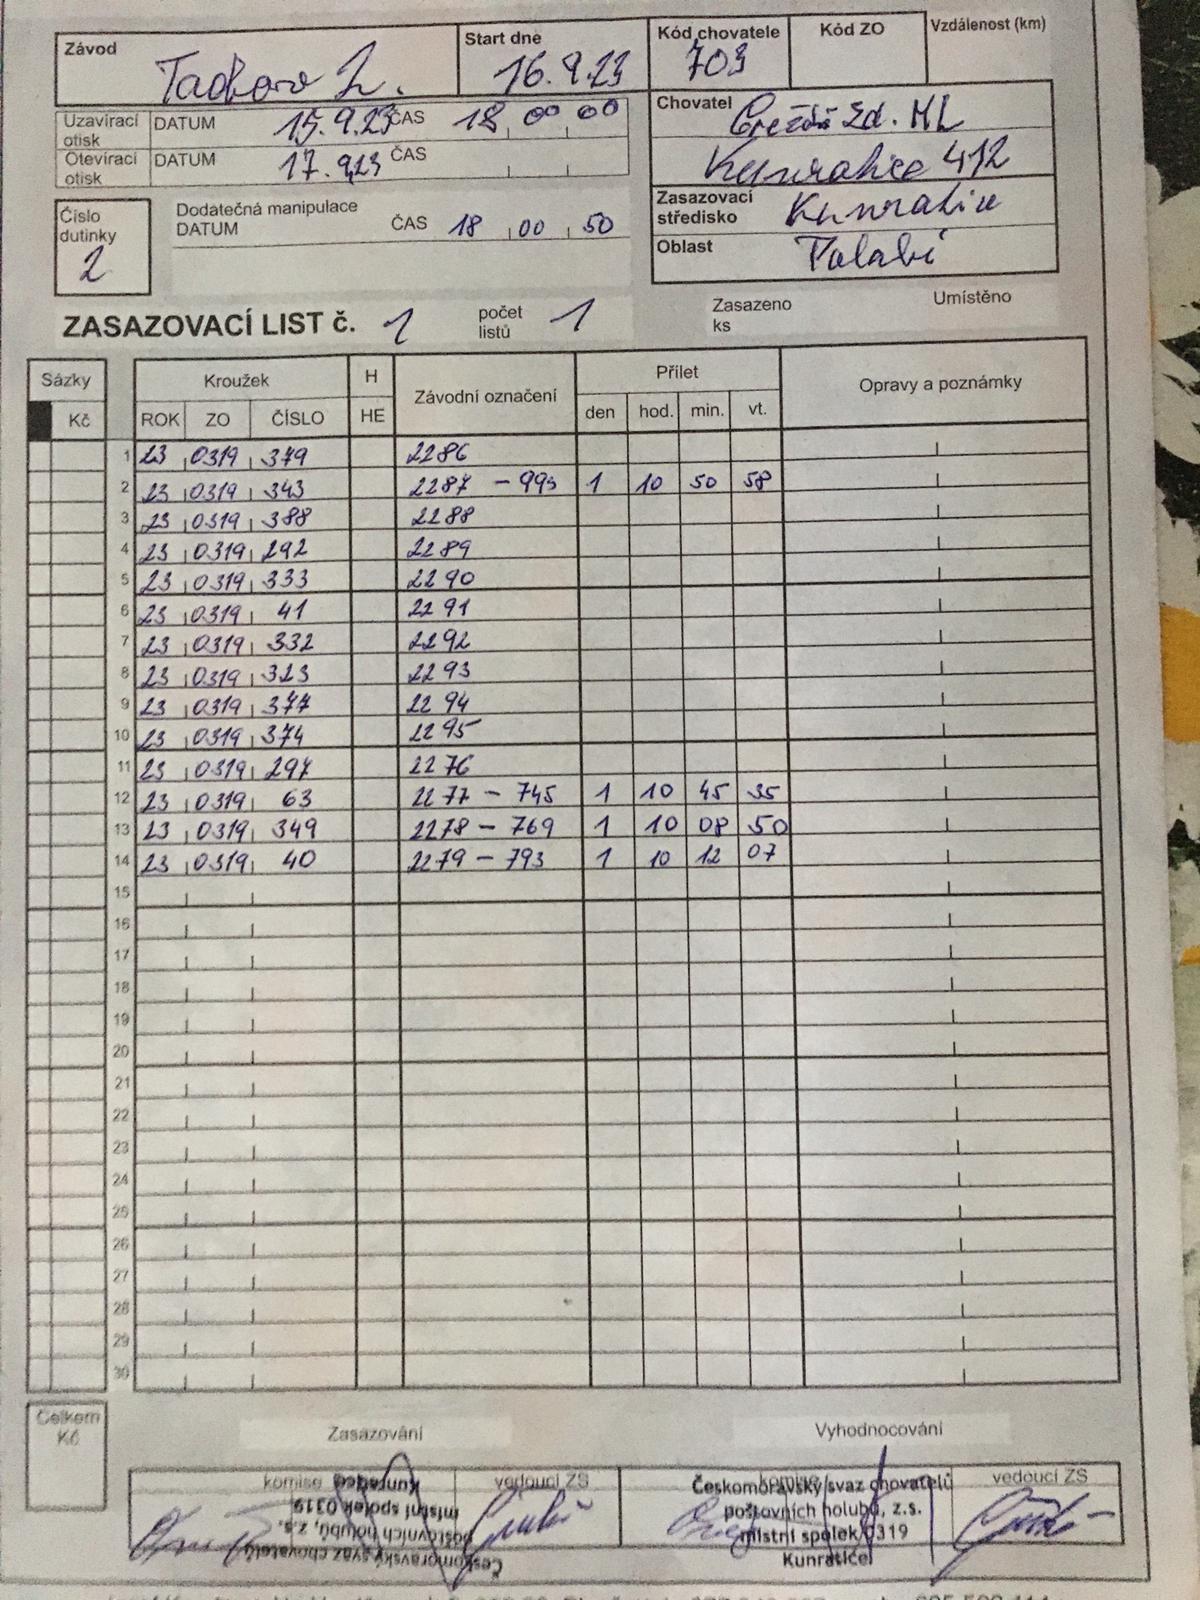 Závod Start dne Kód chovatele Kód ZO Vzdálenost (km)
16.9.23 703
Uzavírací otisk DATUM 15.9.23 ČAS 18 00 00
Otevírací otisk DATUM 17.9.23 ČAS
Chovatel Ed. ML
Kunratice 412
Zasazovací středisko Kunratice
Oblast Polabí
Číslo dutinky 2
Dodatečná manipulace
DATUM ČAS 18 00 50
ZASAZOVACÍ LIST č. 1 počet listů 1 Zasazeno ks Umístěno
Sázky Kroužek H Závodní označení Přílet Opravy a poznámky
Kč ROK ZO ČÍSLO HE den hod. min. vt.
1 23 0319 379 2286
2 23 0319 343 2287 - 993 1 10 50 58
3 23 0319 388 2288
4 23 0319 292 2289
5 23 0319 333 2290
6 23 0319 41 2291
7 23 0319 332 2292
8 23 0319 323 2293
9 23 0319 377 2294
10 23 0319 374 2295
11 23 0319 297 2276
12 23 0319 63 2277 - 745 1 10 45 35
13 23 0319 349 2278 - 769 1 10 08 50
14 23 0319 40 2279 - 793 1 10 12 07
15
16
17
18
19
20
21
22
23
24
25
26
27
28
29
30
Celkem Kč
Zasazování Vyhodnocování
komise vedoucí ZS komise vedoucí ZS
Českomoravský svaz chovatelů
poštovních holubů, z.s.
místní spolek 0319
Kunratice
Českomoravský svaz chovatelů
poštovních holubů, z.s.
místní spolek 0319
Kunratice